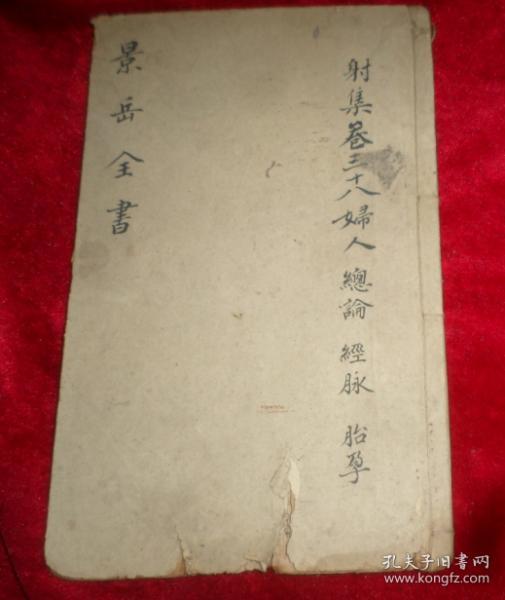 射集卷三十八婦人 總論 經脉 胎孕
景岳全書
孔夫子旧书网
www.kongfz.com